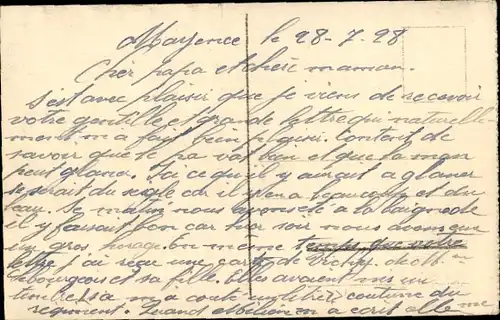 Mayence le 28-7-28
Cher papa et chère maman.
S'est avec plaisir que je viens de recevoir
votre gentille et grande lettre qui naturelle-
ment m'a fait bien plaisir. Contant de
savoir que le pa vat bien et que la man
peut glaner. Sa ce qu'il y aurait a glaner
se serait du seigle car il y en a beaucoup et du
beau. Se matin nous avons été a la baignade
il y faisait bon car hier soir nous avons eu
un gros horage. en meme temps que votre
lettre j'ai reçu une carte de Vichy de M
Lebourgeois et sa fille. Elles avaient mis un
timbre sa m'a couté un litre coutume du
régiment. Quand m'a écrit elle me